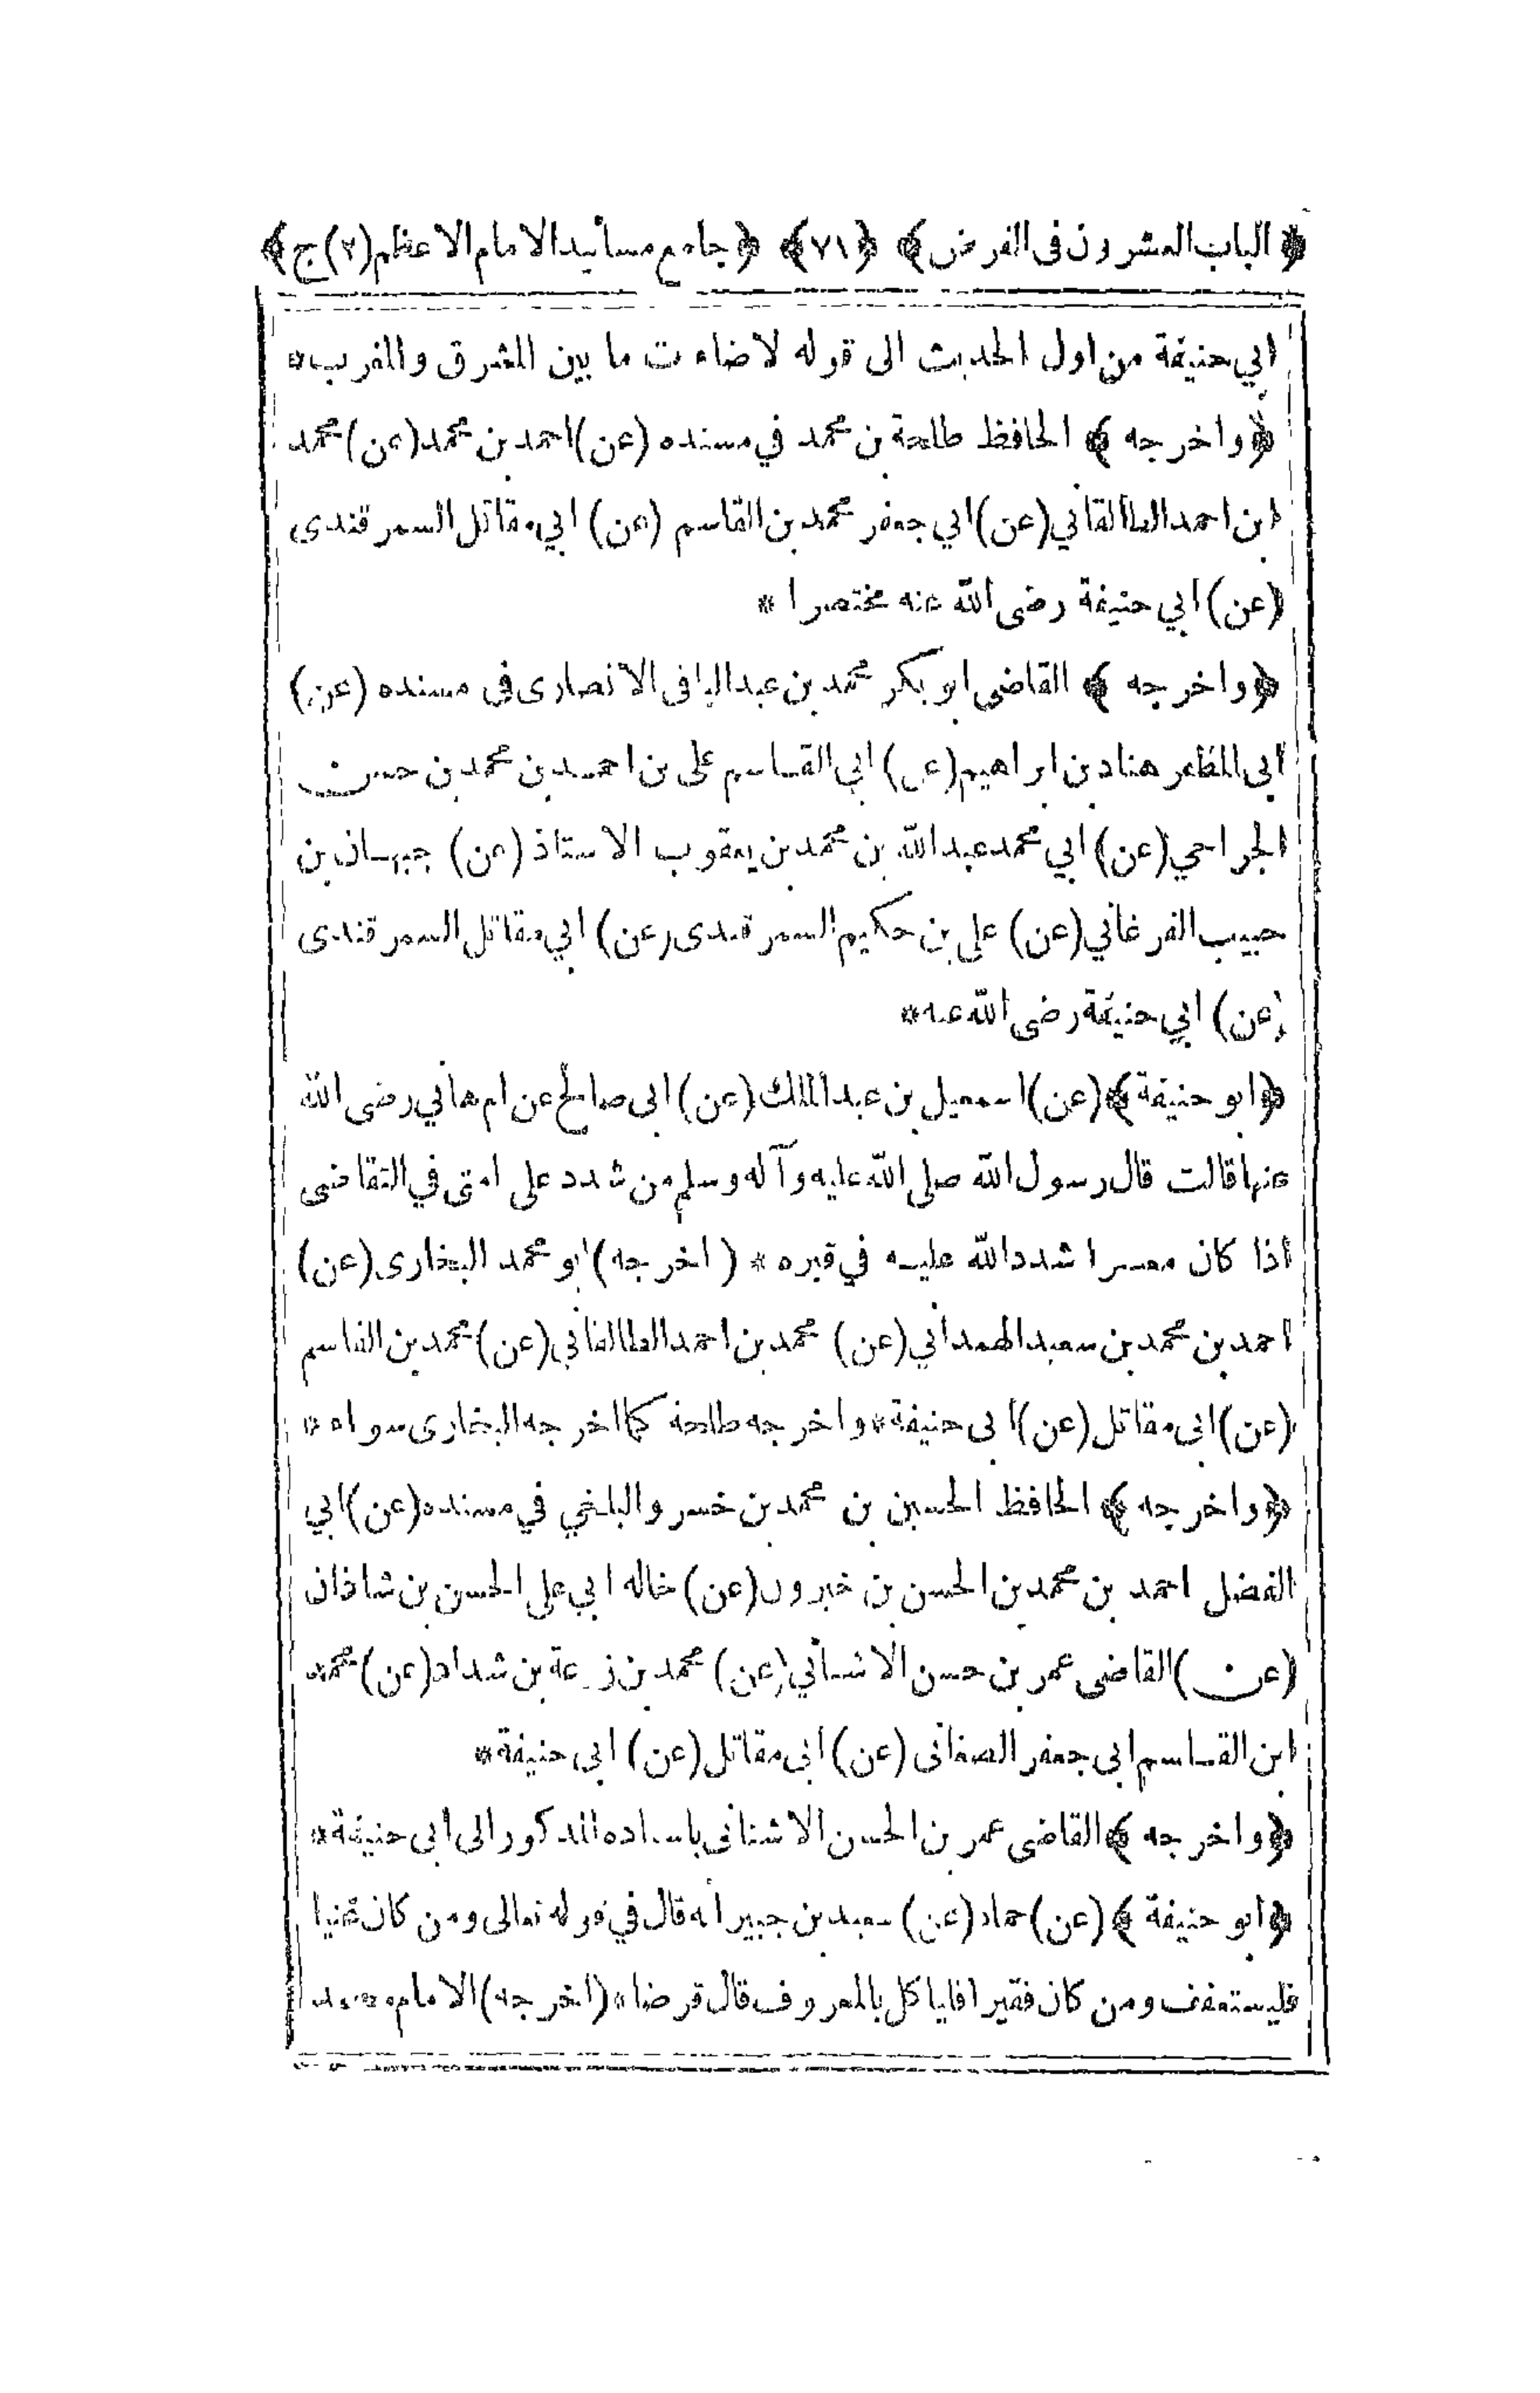 ﴿ الباب العشرون فى القرض ﴾ ﴿ ٧١ ﴾ ﴿ جامع مسانيد الامام الاعظم (٢) ج ﴾
ابي حنيفة من اول الحديث الى قوله لاضاءت ما بين المشرق والمغرب *
﴿ واخرجه ﴾ الحافظ طلحة بن محمد في مسنده (عن) احمد بن محمد (عن) محمد
ابن احمد الطالقاني (عن) ابي جعفر محمد بن القاسم (عن) ابي مقاتل السمرقندى
(عن) ابي حنيفة رضى الله عنه مختصرا *
﴿ واخرجه ﴾ القاضى ابو بكر محمد بن عبد الباقى الانصارى فى مسنده (عن)
ابى المظفر هناد بن ابراهيم (عن) ابي القاسم على بن احمد بن محمد بن حسن
الجراحي (عن) ابي محمد عبد الله بن محمد بن يعقوب الاستاذ (عن) جبهان بن
حبيب الفرغاني (عن) على بن حكيم السمرقندى (عن) ابي مقاتل السمرقندى
(عن) ابي حنيفة رضى الله عنه *
﴿ ابو حنيفة ﴾ (عن) اسمعيل بن عبد الملك (عن) ابى صالح عن ام هاني رضى الله
عنها قالت قال رسول الله صلى الله عليه وآله وسلم من شدد على امتى في التقاضى
اذا كان معسرا شدد الله عليه في قبره * (اخرجه) ابو محمد البخارى (عن)
احمد بن محمد بن سعيد الهمداني (عن) محمد بن احمد الطالقاني (عن) محمد بن القاسم
(عن) ابى مقاتل (عن) ابى حنيفة * واخرجه طلحة كما اخرجه البخارى سواء *
﴿ واخرجه ﴾ الحافظ الحسين بن محمد بن خسرو البلخي في مسنده (عن) ابي
الفضل احمد بن محمد بن الحسن بن خيرون (عن) خاله ابي على الحسن بن شاذان
(عن) القاضى عمر بن حسن الاشناني (عن) محمد بن زرعة بن شداد (عن) محمد
ابن القاسم ابى جعفر الصغانى (عن) ابى مقاتل (عن) ابى حنيفة *
﴿ واخرجه ﴾ القاضى عمر بن الحسن الاشنانى باسناده المذكور الى ابى حنيفة *
﴿ ابو حنيفة ﴾ (عن) حماد (عن) سعيد بن جبير انه قال في قوله تعالى ومن كان غنيا
فليستعفف ومن كان فقيرا فلياكل بالمعروف قال قرضا * (اخرجه) الامام محمد